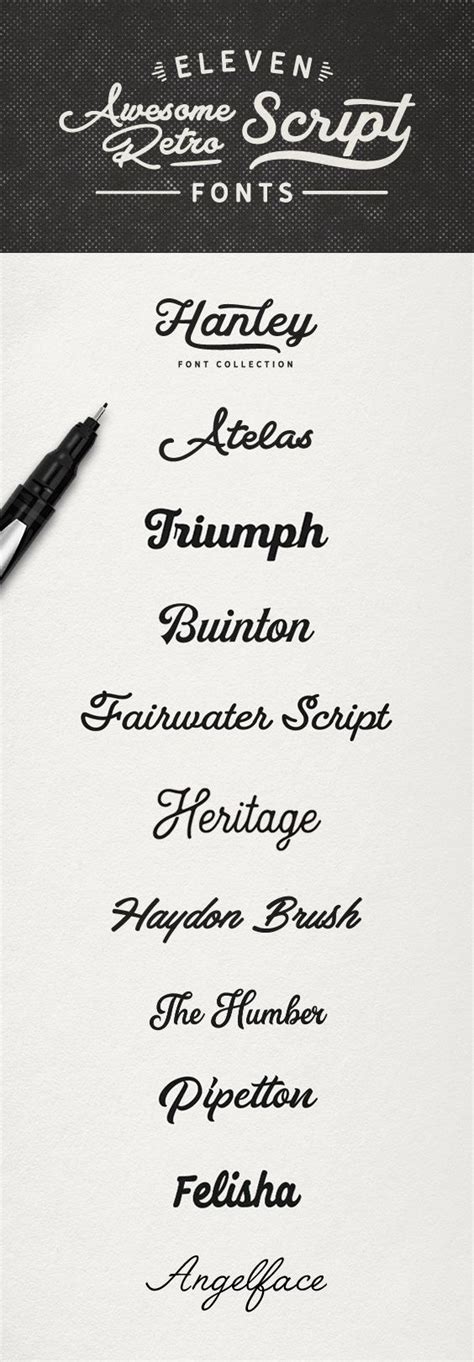 ELEVEN
Awesome Retro Script
FONTS
Hanley
FONT COLLECTION
Atelas
Triumph
Buinton
Fairwater Script
Heritage
Haydon Brush
The Humber
Pipetton
Felisha
Angelface